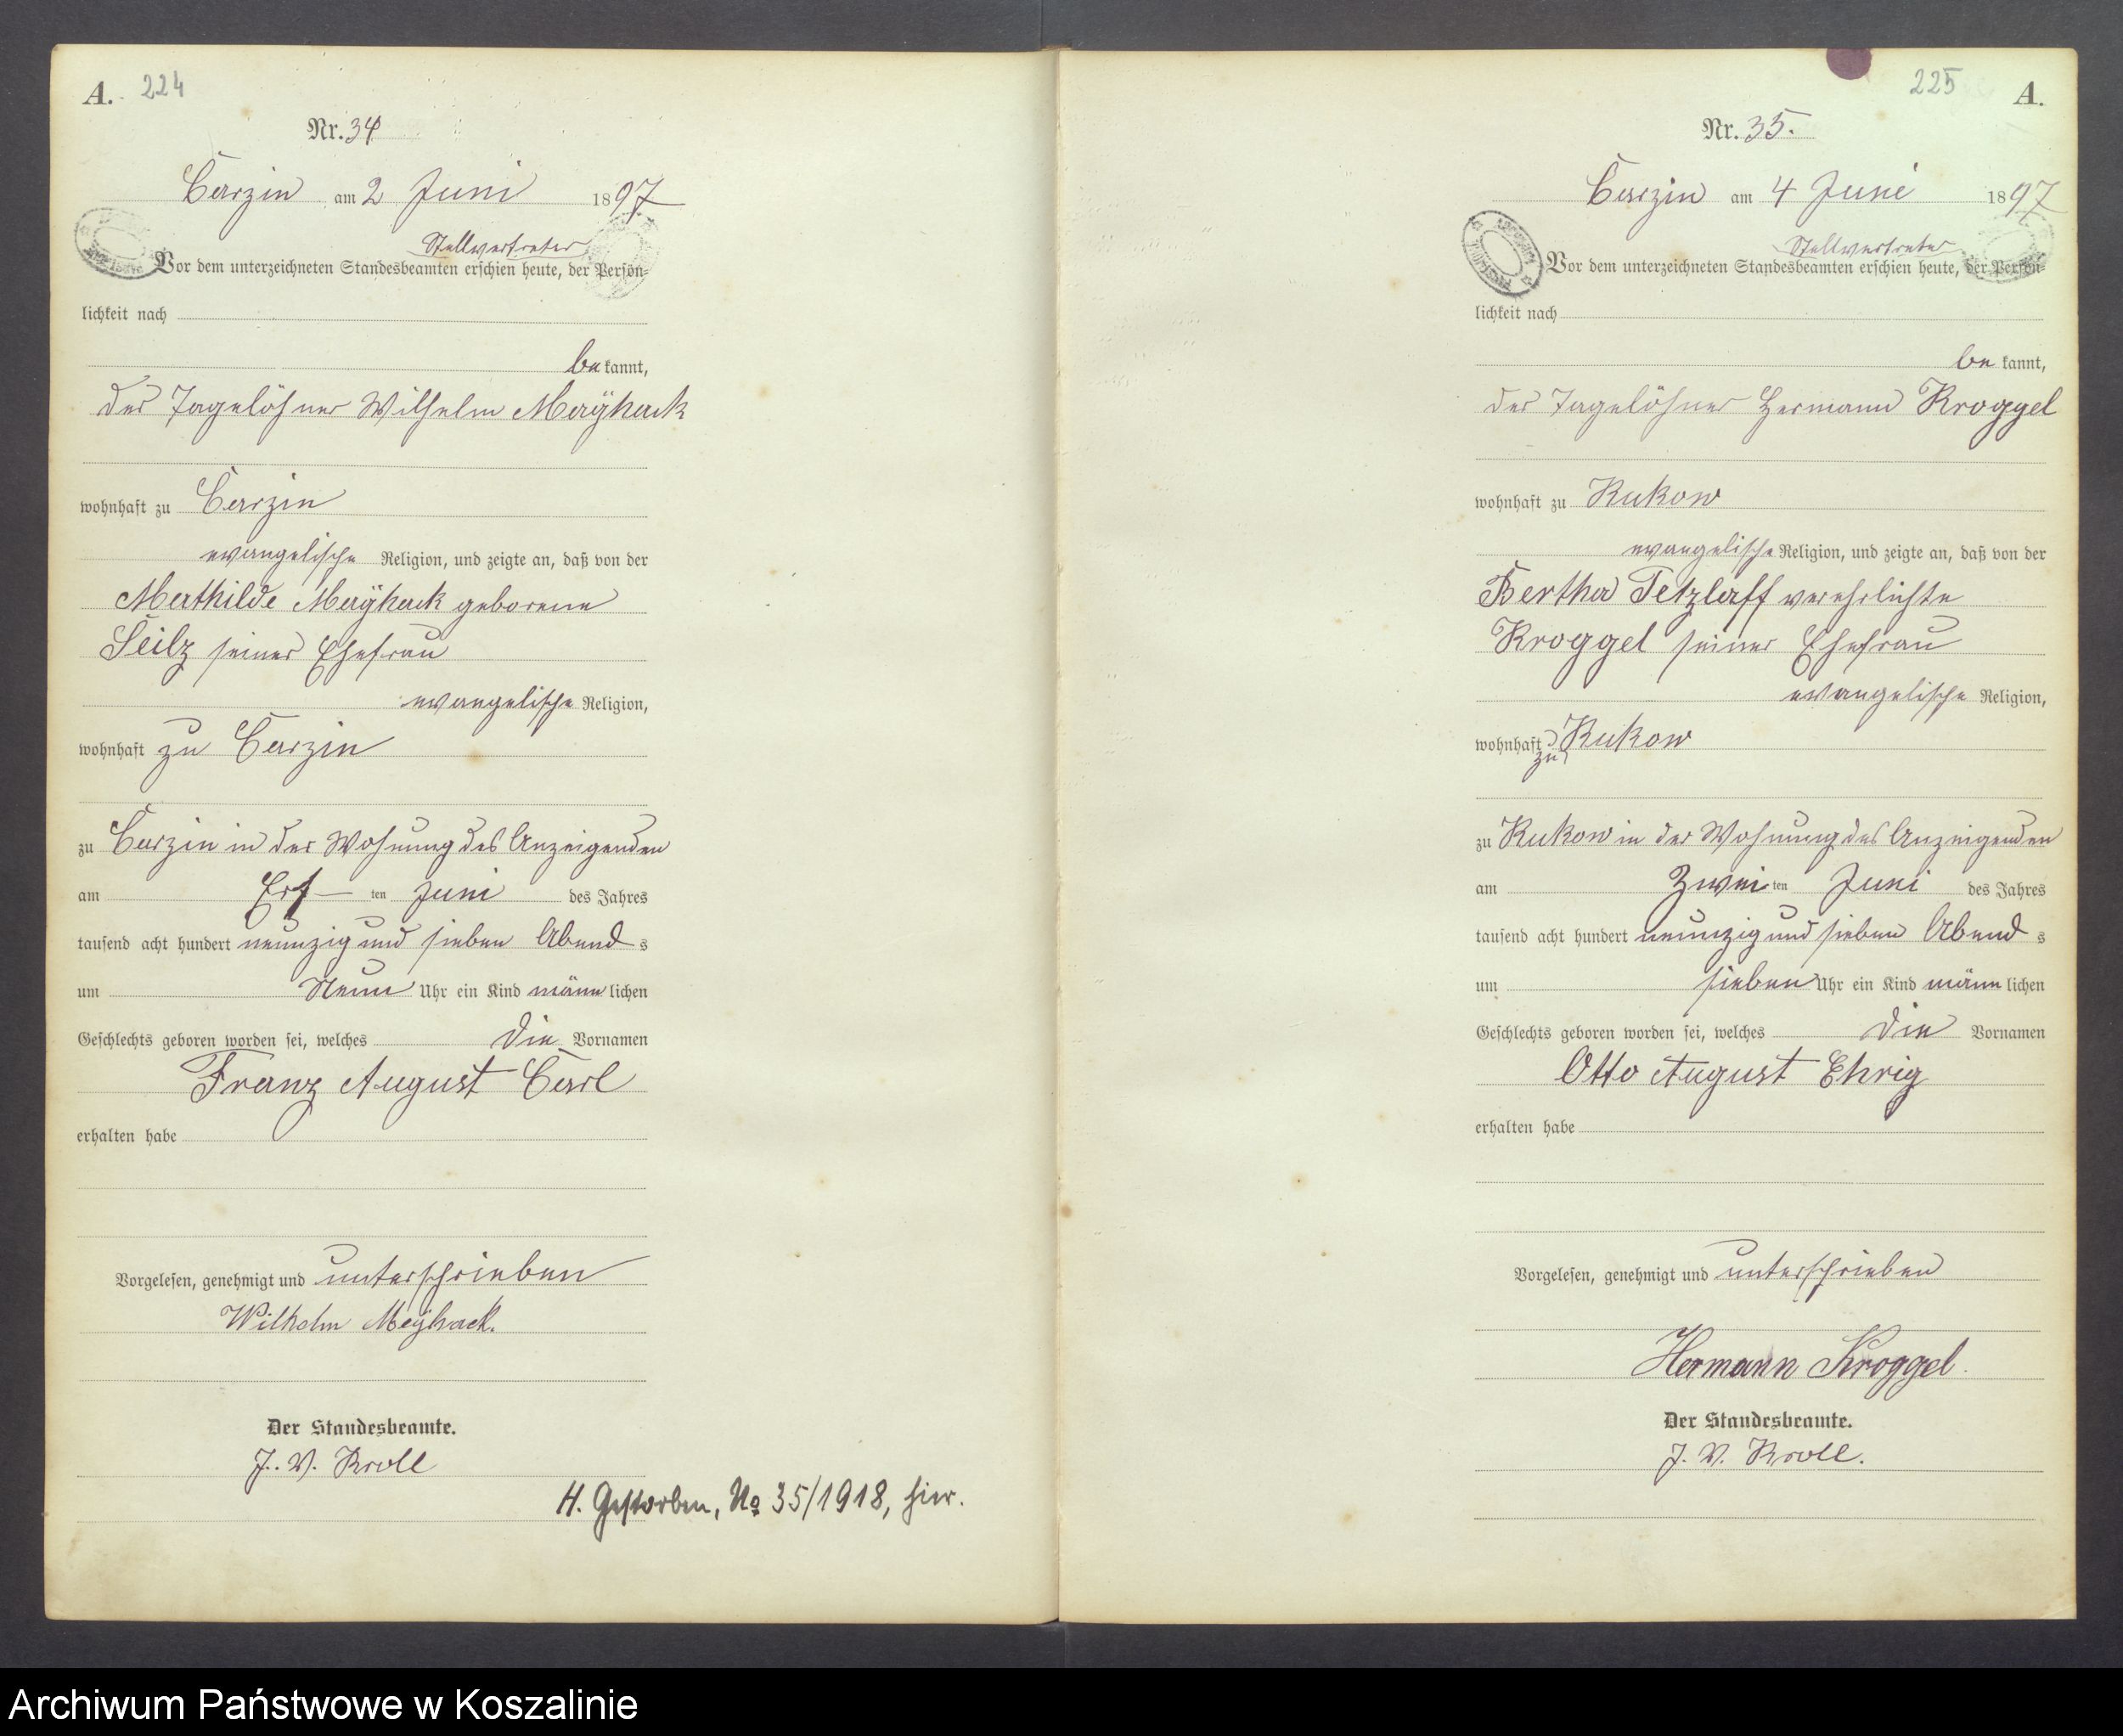 A. 224
Nr. 34
Carzin am 2 Juni 1897
Stellvertreter
Vor dem unterzeichneten Standesbeamten erschien heute, der Persön-
lichkeit nach
be kannt,
der Tagelöhner Wilhelm Mayhack
wohnhaft zu Carzin
evangelische Religion, und zeigte an, daß von der
Mathilde Mayhack geborene
Seilz seiner Ehefrau
evangelische Religion,
wohnhaft zu Carzin
zu Carzin in der Wohnung des Anzeigenden
am Erst ten Juni des Jahres
tausend acht hundert neunzig und sieben Abend s
um Neun Uhr ein Kind männ lichen
Geschlechts geboren worden sei, welches die Vornamen
Franz August Carl
erhalten habe
Vorgelesen, genehmigt und unterschrieben
Wilhelm Meÿhack.
Der Standesbeamte.
J. V. Kroll
H. Gestorben, No 35/1918, hier.
225 A.
Nr. 35.
Carzin am 4 Juni 1897
Stellvertreter
Vor dem unterzeichneten Standesbeamten erschien heute, der Persön-
lichkeit nach
be kannt,
der Tagelöhner Hermann Kroggel
wohnhaft zu Kukow
evangelische Religion, und zeigte an, daß von der
Bertha Tetzlaff verehelichte
Kroggel seiner Ehefrau
evangelische Religion,
wohnhaft zu Kukow
zu Kukow in der Wohnung des Anzeigenden
am Zwei ten Juni des Jahres
tausend acht hundert neunzig und sieben Abend s
um sieben Uhr ein Kind männ lichen
Geschlechts geboren worden sei, welches die Vornamen
Otto August Ehrig
erhalten habe
Vorgelesen, genehmigt und unterschrieben
Hermann Kroggel.
Der Standesbeamte.
J. V. Kroll.
Archiwum Państwowe w Koszalinie